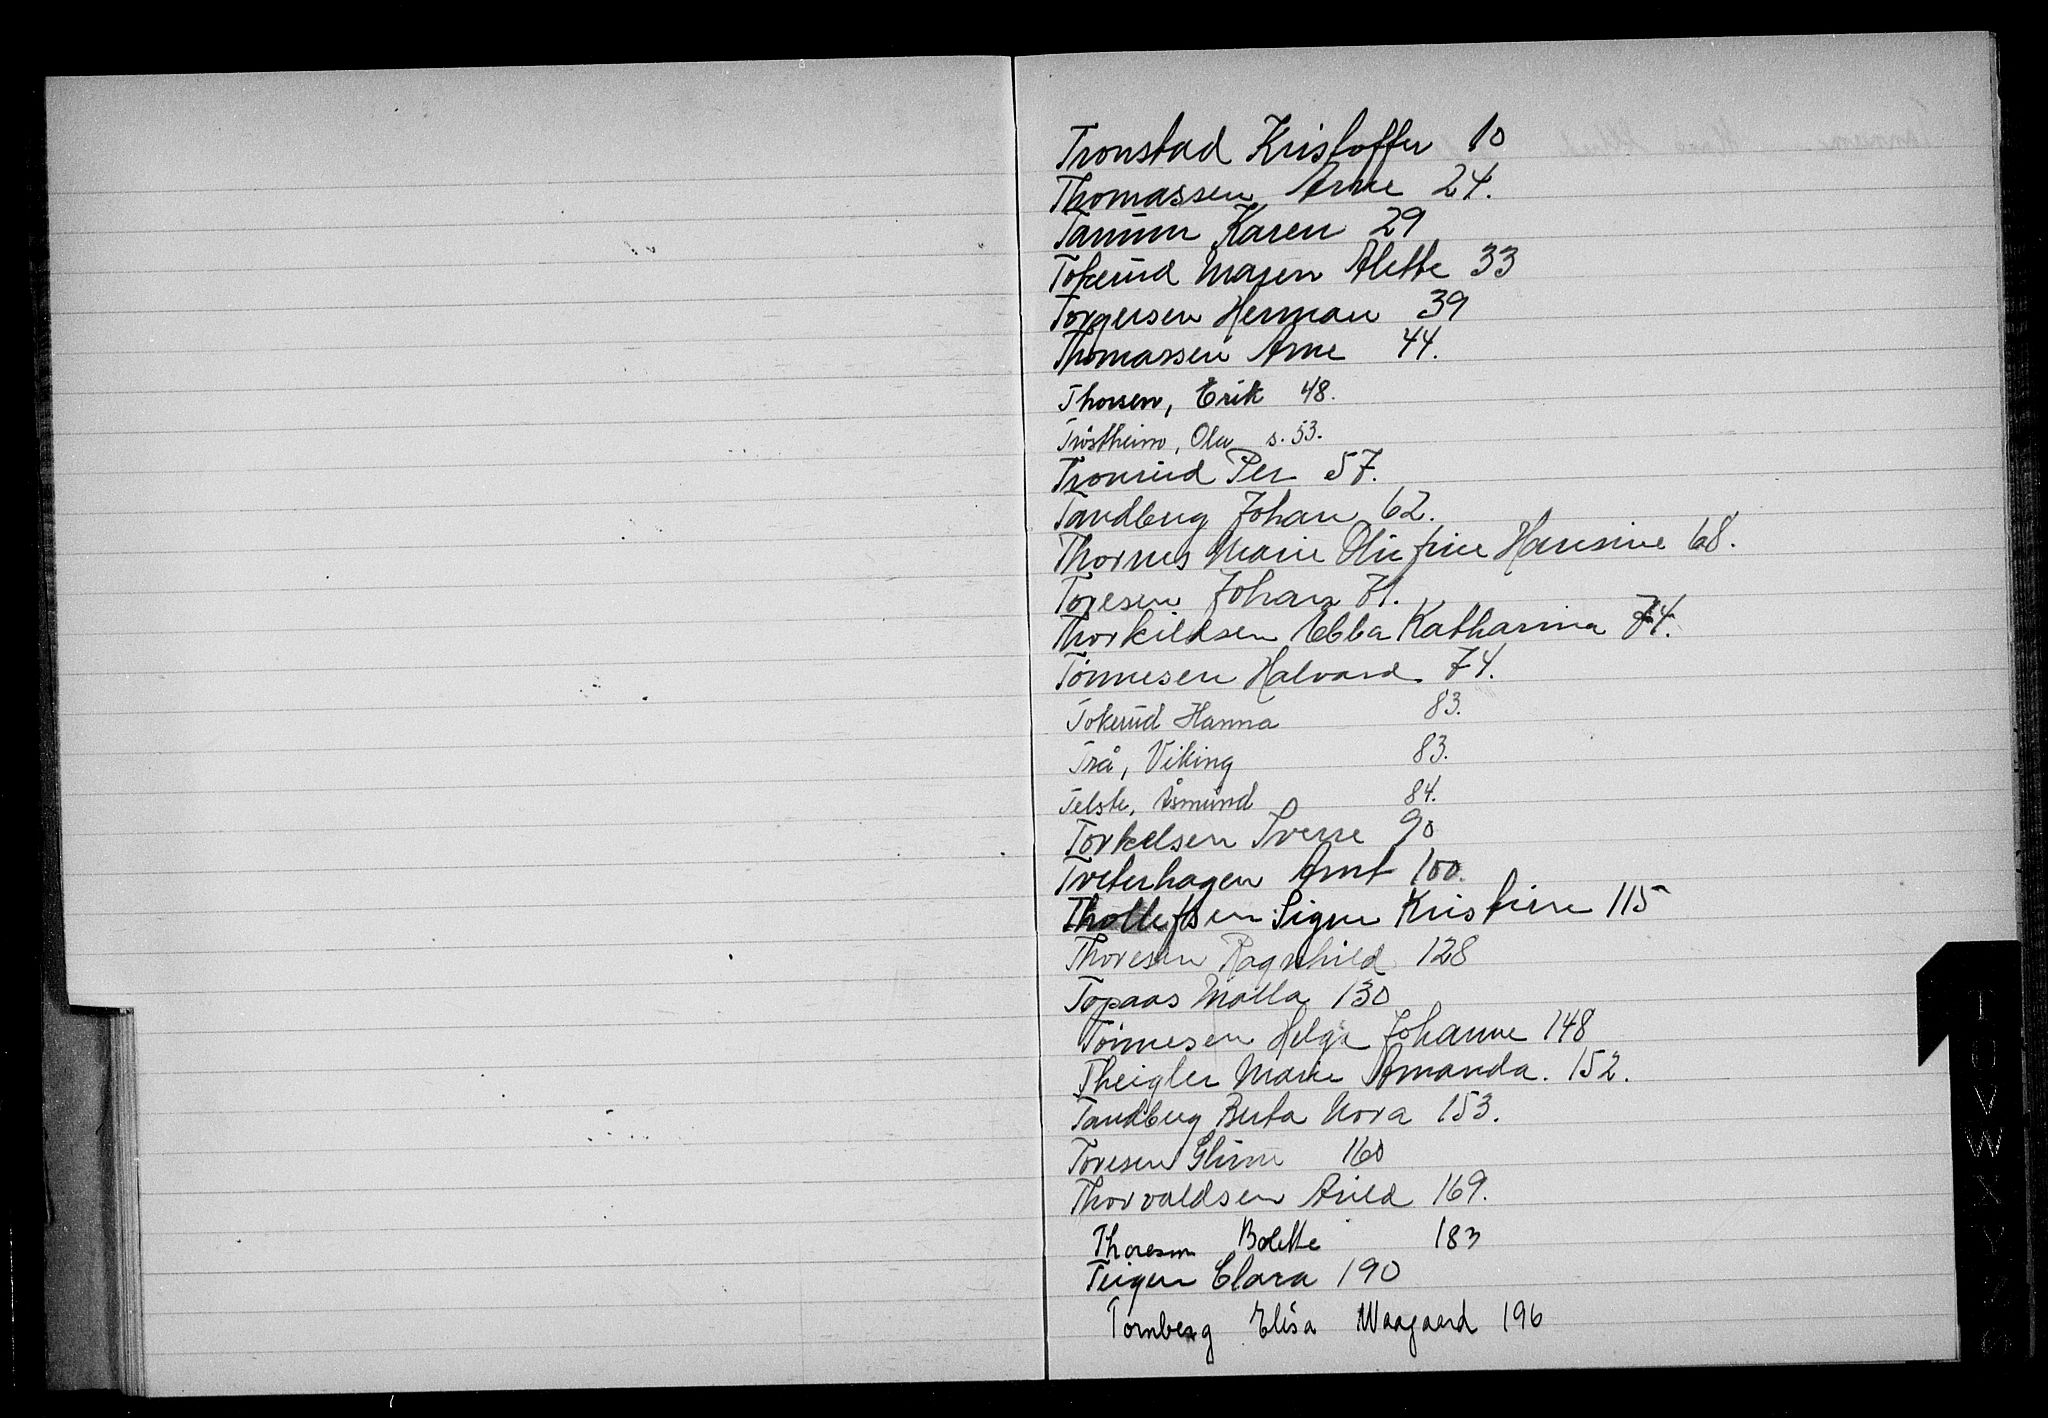 Tronstad Kristoffer 10
Thomassen Arne 24.
Tanum Karen 29
Tokerud Maren Alette 33
Torgersen Herman 39
Thomassen Arne 44.
Thorsen, Erik 48.
Trøstheim, Olav s. 53.
Tronrud Per 57.
Tandberg Johan 62.
Thornes Marie Olufine Hansine 68.
Toresen Johan 71.
Thorkildsen Ebba Katharina 74.
Tönnesen Halvard 74.
Tokerud Hanna 83.
Trå, Viking 83.
Telste, Åsmund 84.
Torkelsen Sverre 90
Tveterhagen Arnt 100.
Thollefsen Signe Kristine 115
Thoresen Ragnhild 128
Topaas Malla 130
Tönnesen Helga Johanne 148
Theigler Marie Amanda. 152.
Tandberg Berta Nora 153.
Toresen 160
Thorvaldsen Arild 169.
Thoresen Bolette 183
Teigen Clara 190
Tornberg Elisa Waagaard 196
T
U
V
W
X
Y
Z